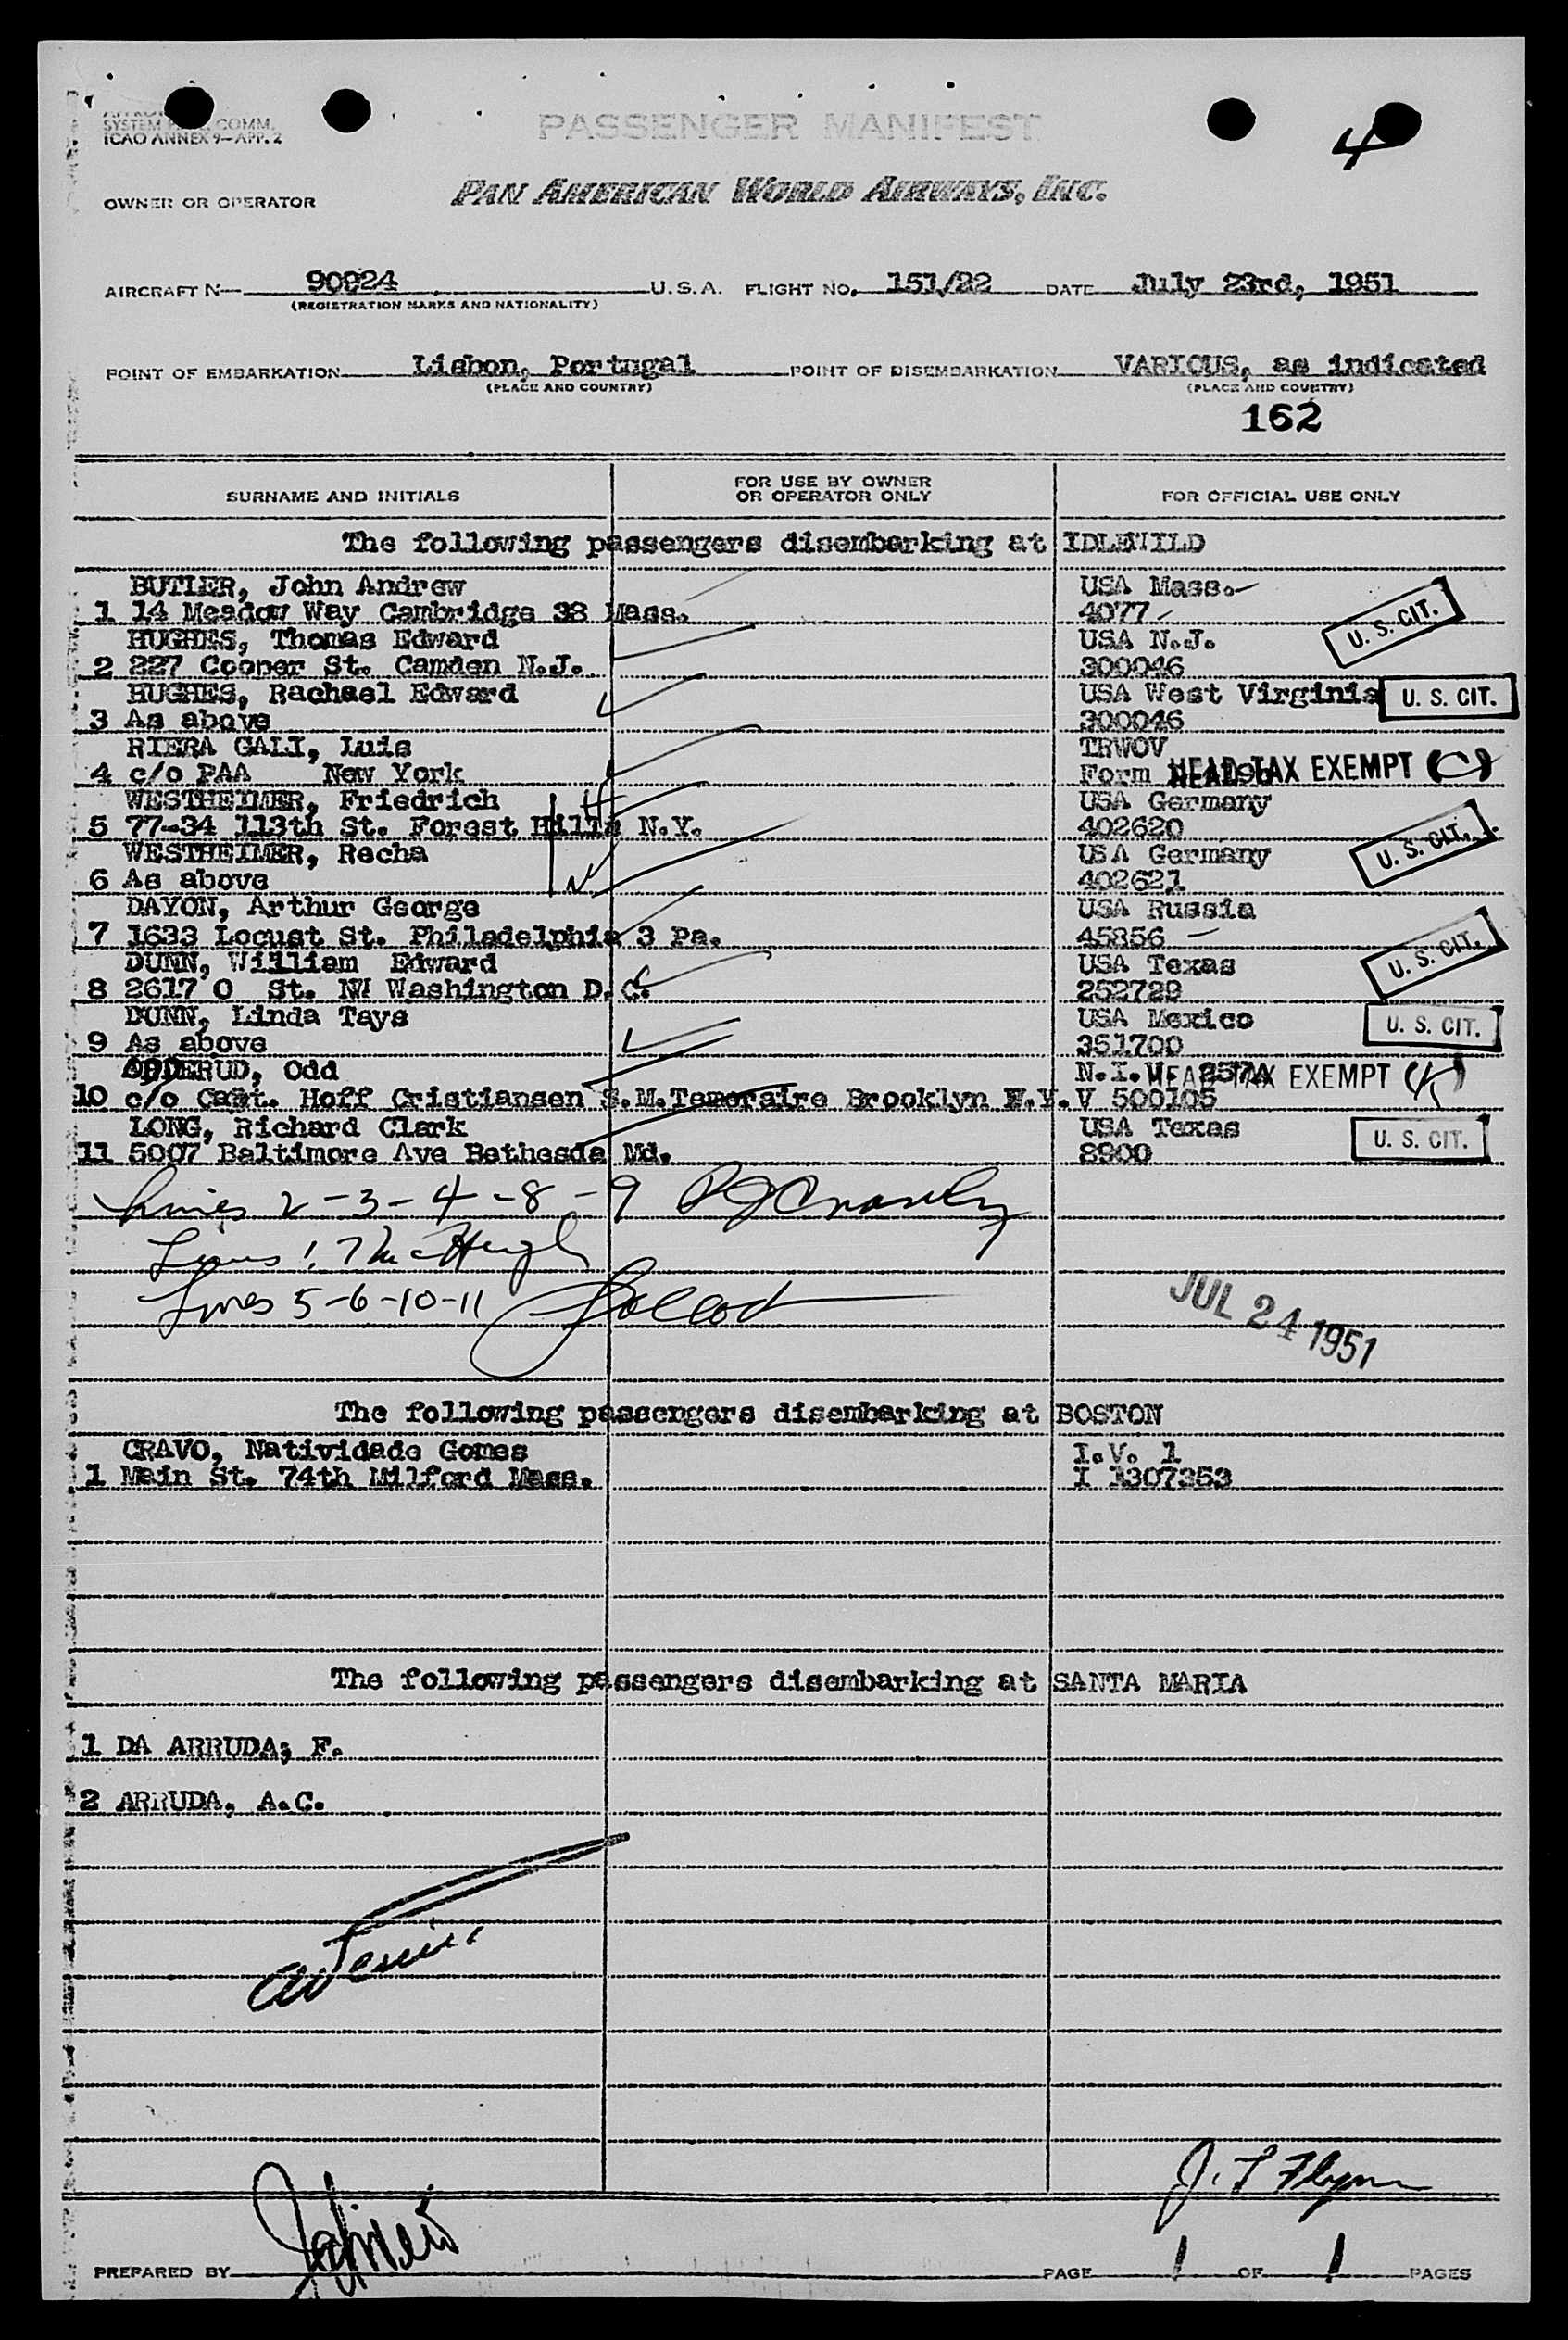 SYSTEM COMM.
ICAO ANNEX 9—APP. 2
PASSENGER MANIFEST
4
OWNER OR OPERATOR PAN AMERICAN WORLD AIRWAYS, INC.
AIRCRAFT N— 90924 U.S.A. FLIGHT NO. 151/22 DATE July 23rd, 1951
(REGISTRATION MARKS AND NATIONALITY)
POINT OF EMBARKATION Lisbon, Portugal POINT OF DISEMBARKATION VARIOUS, as indicated
(PLACE AND COUNTRY) (PLACE AND COUNTRY)
162
SURNAME AND INITIALS FOR USE BY OWNER OR OPERATOR ONLY FOR OFFICIAL USE ONLY
The following passengers disembarking at IDLEWILD
BUTLER, John Andrew USA Mass.
1 14 Meadow Way Cambridge 38 Mass. 4077 U. S. CIT.
HUGHES, Thomas Edward USA N.J.
2 227 Cooper St. Camden N.J. 300046
HUGHES, Rachael Edward USA West Virginia U. S. CIT.
3 As above 300046
RIERA GALI, Luis TRWOV
4 c/o PAA New York Form HEAD TAX EXEMPT (C)
WESTHEIMER, Friedrich USA Germany
5 77-34 113th St. Forest Hills N.Y. 402620
WESTHEIMER, Recha USA Germany U. S. CIT.
6 As above 402621
DAYON, Arthur George USA Russia
7 1633 Locust St. Philadelphia 3 Pa. 45856
DUNN, William Edward USA Texas U. S. CIT.
8 2617 O St. NW Washington D.C. 252729
DUNN, Linda Tays USA Mexico U. S. CIT.
9 As above 351700
ODDERUD, Odd N.I. 257A HEAD TAX EXEMPT
10 c/o Capt. Hoff Cristiansen S.M. Temeraire Brooklyn N.Y. V 500105
LONG, Richard Clark USA Texas U. S. CIT.
11 5007 Baltimore Ave Bethesda Md. 8900
Lines 2-3-4-8-9
Lines 1, 7 McHugh
Lines 5-6-10-11
JUL 24 1951
The following passengers disembarking at BOSTON
CRAVO, Natividade Gomes I.V. 1
1 Main St. 74th Milford Mass. I 1307353
The following passengers disembarking at SANTA MARIA
1 DA ARRUDA; F.
2 ARRUDA, A.C.
J. T Flynn
PREPARED BY PAGE 1 OF 1 PAGES